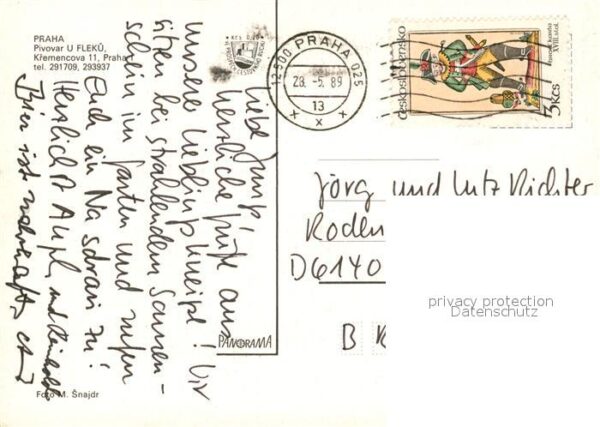 PRAHA
Pivovar U FLEKŮ,
Křemencova 11, Praha
tel. 291709, 293937
Kčs 0,20
12 500 PRAHA 025
28. -5. 89
13
x x x
československo
5 Kčs
XVIII. stol.
Liebe Jungs!
herzliche Grüße aus
unserer Lieblingskneipe! Wir
sitzen bei strahlendem Sonnen-
schein im Garten und rufen
Euch ein Na sdravi zu!
Herzlichst und Reinhold
Bier ist wahrhaftig
PANORAMA
Foto M. Šnajdr
Jörg und Lutz Richter
Roden
D6140
B
privacy protection
Datenschutz